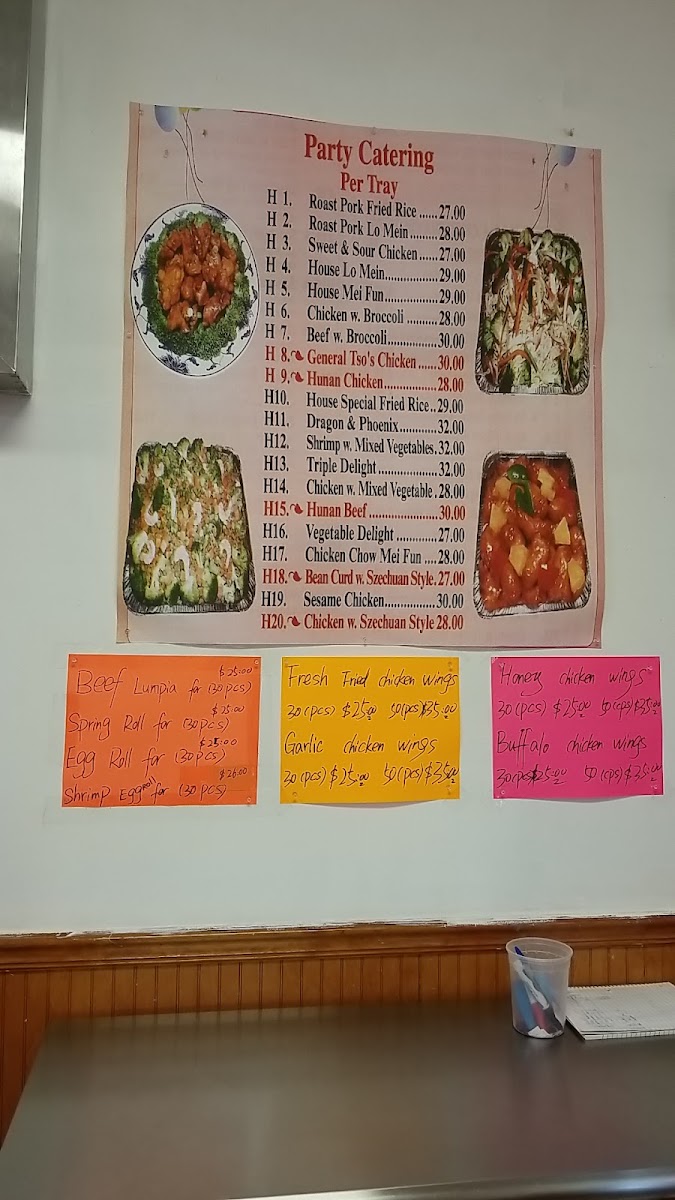 Party Catering
Per Tray
H 1. Roast Pork Fried Rice ......27.00
H 2. Roast Pork Lo Mein........28.00
H 3. Sweet & Sour Chicken......27.00
H 4. House Lo Mein................29.00
H 5. House Mei Fun................29.00
H 6. Chicken w. Broccoli .........28.00
H 7. Beef w. Broccoli...............30.00
H 8. General Tso's Chicken ......30.00
H 9. Hunan Chicken................28.00
H10. House Special Fried Rice..29.00
H11. Dragon & Phoenix...........32.00
H12. Shrimp w. Mixed Vegetables.32.00
H13. Triple Delight..................32.00
H14. Chicken w. Mixed Vegetable .28.00
H15. Hunan Beef .....................30.00
H16. Vegetable Delight ............27.00
H17. Chicken Chow Mei Fun ....28.00
H18. Bean Curd w. Szechuan Style.27.00
H19. Sesame Chicken................30.00
H20. Chicken w. Szechuan Style 28.00
Beef Lumpia for (30 pcs) $25.00
Spring Roll for (30 pcs) $25.00
Egg Roll for (30 pcs) $25.00
Shrimp Eggroll for (30 pcs) $26.00
Fresh Fried chicken wings
30 (pcs) $25.00 50 (pcs) $35.00
Garlic chicken wings
30 (pcs) $25.00 50 (pcs) $35.00
Honey chicken wings
30 (pcs) $25.00 50 (cps) $35.00
Buffalo chicken wings
30 (pcs $25.00 50 (cps) $35.00